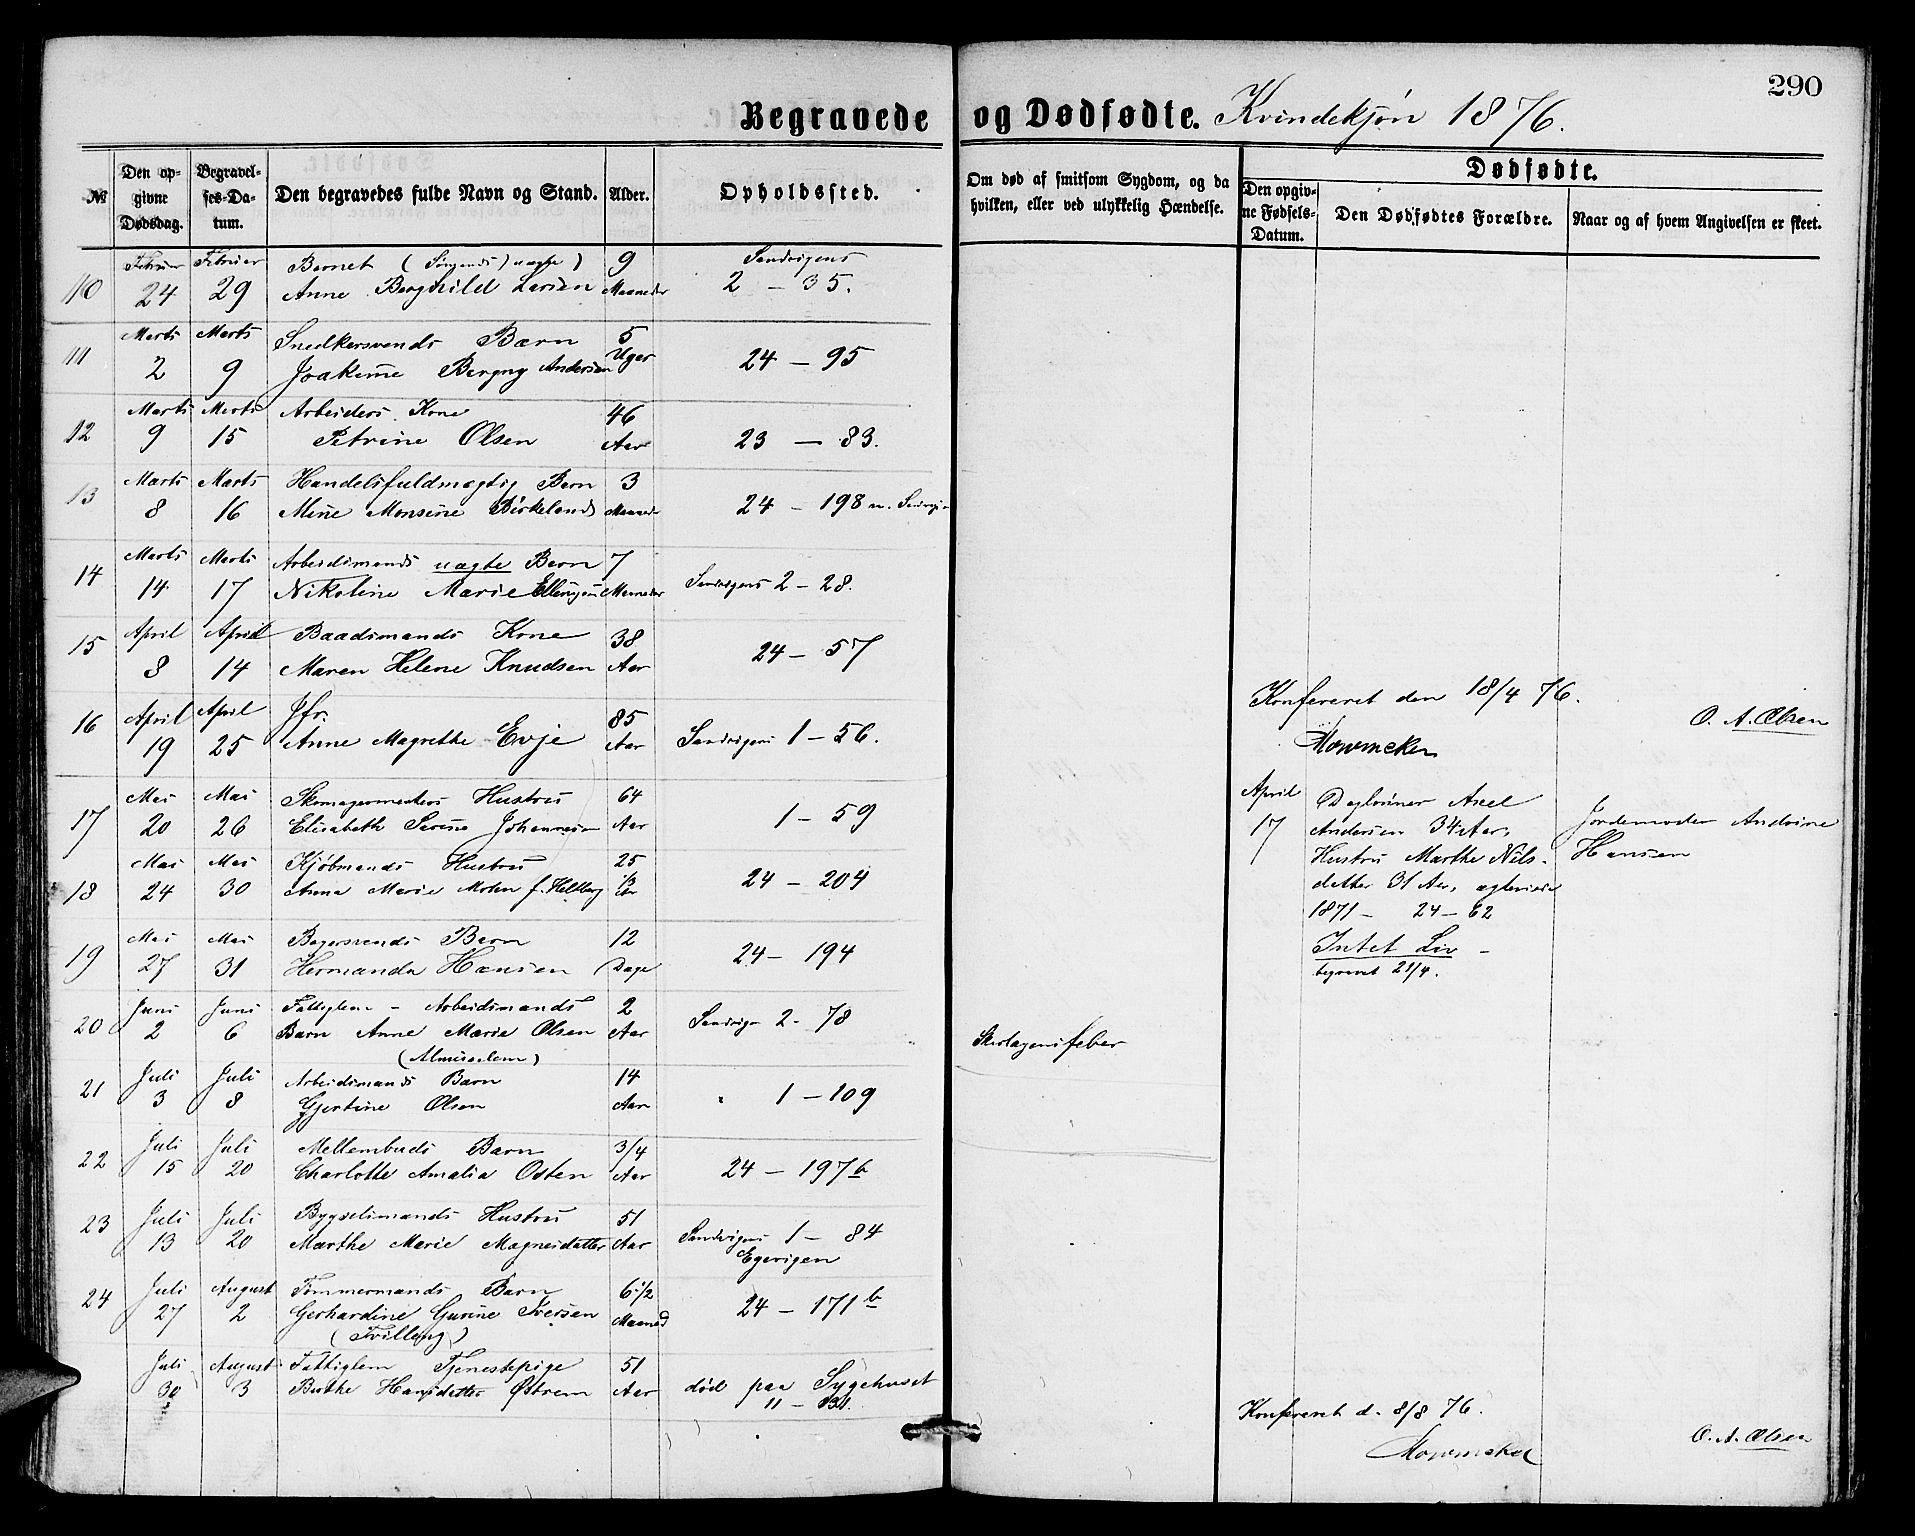 290
Begravede og Dødfødte. Kvindekjøn 1876.
№
Den op-
givne
Dødsdag.
Begravel-
ses-Da-
tum.
Den begravedes fulde Navn og Stand.
Alder.
Opholdssted.
Om død af smitsom Sygdom, og da
hvilken, eller ved ulykkelig Hændelse.
Dødfødte.
Den opgiv-
ne Fødsels-
Datum.
Den Dødfødtes Forældre.
Naar og af hvem Angivelsen er skeet.
Februar Februar Barnet ( uægte ) 9 Sandvigens
10 24 29 Anne Berghild Larsen Maaneder 2 - 35.
Marts Marts Snedkersvends Barn 5
11 2 9 Joakime Bergny Andersen Uger 24 - 95
Marts Marts Arbeiders Kone 46
12 9 15 Petrine Olsen Aar 23 - 83.
Marts Marts Handelsfuldmægtig Barn 3
13 8 16 Mine Monsine Birkeland Maaneder 24 - 198
Marts Marts Arbeidsmands uægte Barn 7
14 14 17 Nikoline Marie Ellingsen Maaneder Sandvigens 2 - 28.
April April Baadsmands Kone 38
15 8 14 Maren Helene Knudsen Aar 24 - 57
April April Jfr. 85
16 19 25 Anne Magrethe Evje Aar Sandvigens 1 - 56.
Mai Mai Skomagermesters Hustru 64
17 20 26 Elisabeth Serine Johannesen Aar 1 - 59
Mai Mai Kjøbmands Hustru 25 1/3
18 24 30 Anna Marie f. Hellberg Aar 24 - 204
Mai Mai Bagersvends Barn 12
19 27 31 Hermanda Hansen Dage 24 - 194
Juni Juni Fattiglem - Arbeidsmands 2
20 2 6 Barn Anne Marie Olsen Aar Sandvigen 2 - 78
(Almisselem)
Skarlagensfeber
Juli Juli Arbeidsmands Barn 14
21 3 8 Gjertine Olsen Aar 1 - 109
Juli Juli Barn 3/4
22 15 20 Charlotte Amalia Osten Aar 24 - 197b
Juli Juli Bygselsmands Hustru 51
23 13 20 Marthe Marie Magnesdatter Aar Sandvigens 1 - 84
Egevigen
Juli August Tømmermands Barn 6 1/2
24 27 2 Gerhardine Gurine Iversen Maaned 24 - 171b
(Tvilling)
Juli August Fattiglem Tjenestepige 51
30 3 Berthe Hansdatter Østrem Aar død paa Sygehuset
11 - 131.
Konfereret den 18/4 76.
O. A. Olsen
April
17
Dagleiner Axel
Andersen 34 Aar,
Hustru Marthe Nils-
datter 31 Aar, ægteviede
1871 - 24 - 62
Intet Liv -
begravet 21/4.
Jordemoder Andrine
Hansen
Konfereret d. 8/8 76.
O. A. Olsen